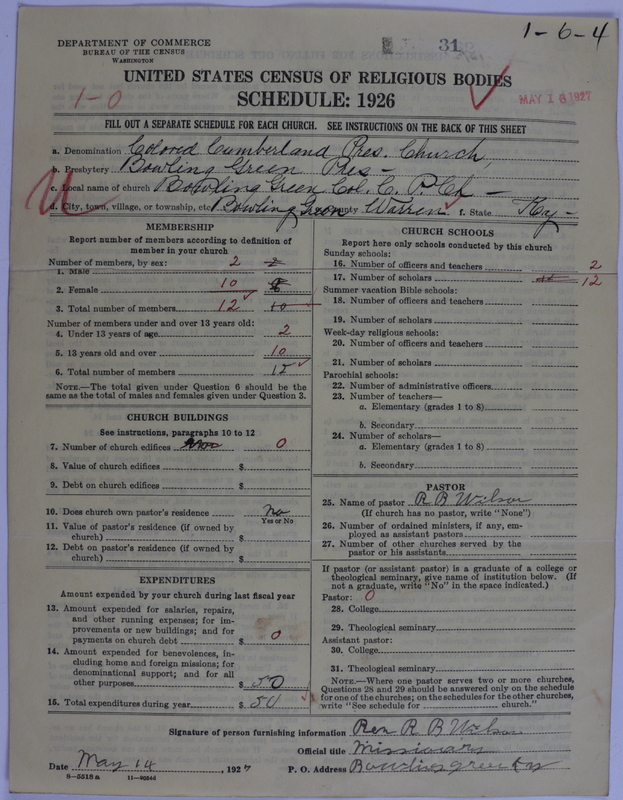 1-6-4
DEPARTMENT OF COMMERCE
BUREAU OF THE CENSUS
WASHINGTON
31
UNITED STATES CENSUS OF RELIGIOUS BODIES
1-0
SCHEDULE: 1926
MAY 16 1927
FILL OUT A SEPARATE SCHEDULE FOR EACH CHURCH. SEE INSTRUCTIONS ON THE BACK OF THIS SHEET
a. Denomination Colored Cumberland Pres. Church,
b. Presbytery Bowling Green Pres -
c. Local name of church Bowling Green Col. C. P. Ch -
d. City, town, village, or township, etc. Bowling Green County Warren f. State Ky -
MEMBERSHIP
Report number of members according to definition of
member in your church
Number of members, by sex:
1. Male 2 2
2. Female 10 8
3. Total number of members 12 10
Number of members under and over 13 years old:
4. Under 13 years of age 2
5. 13 years old and over 10
6. Total number of members 12
NOTE.—The total given under Question 6 should be the
same as the total of males and females given under Question 3.
CHURCH BUILDINGS
See instructions, paragraphs 10 to 12
7. Number of church edifices 0
8. Value of church edifices $
9. Debt on church edifices $
10. Does church own pastor's residence No
Yes or No
11. Value of pastor's residence (if owned by
church) $
12. Debt on pastor's residence (if owned by
church) $
EXPENDITURES
Amount expended by your church during last fiscal year
13. Amount expended for salaries, repairs,
and other running expenses; for im-
provements or new buildings; and for
payments on church debt $ 0
14. Amount expended for benevolences, in-
cluding home and foreign missions; for
denominational support; and for all
other purposes $ 50
15. Total expenditures during year $ 50
CHURCH SCHOOLS
Report here only schools conducted by this church
Sunday schools:
16. Number of officers and teachers 2
17. Number of scholars 12
Summer vacation Bible schools:
18. Number of officers and teachers
19. Number of scholars
Week-day religious schools:
20. Number of officers and teachers
21. Number of scholars
Parochial schools:
22. Number of administrative officers
23. Number of teachers—
a. Elementary (grades 1 to 8)
b. Secondary
24. Number of scholars—
a. Elementary (grades 1 to 8)
b. Secondary
PASTOR
25. Name of pastor R B Wilson
(If church has no pastor, write "None")
26. Number of ordained ministers, if any, em-
ployed as assistant pastors
27. Number of other churches served by the
pastor or his assistants
If pastor (or assistant pastor) is a graduate of a college or
theological seminary, give name of institution below. (If
not a graduate, write "No" in the space indicated.)
Pastor: 0
28. College
29. Theological seminary
Assistant pastor:
30. College
31. Theological seminary
NOTE.—Where one pastor serves two or more churches,
Questions 28 and 29 should be answered only on the schedule
for one of the churches; on the schedules for the other churches,
write "See schedule for church."
Signature of person furnishing information Rev R B Wilson
Official title Missionary
Date May 14, 1927 P. O. Address Bowling green Ky
8-5518 a 11-